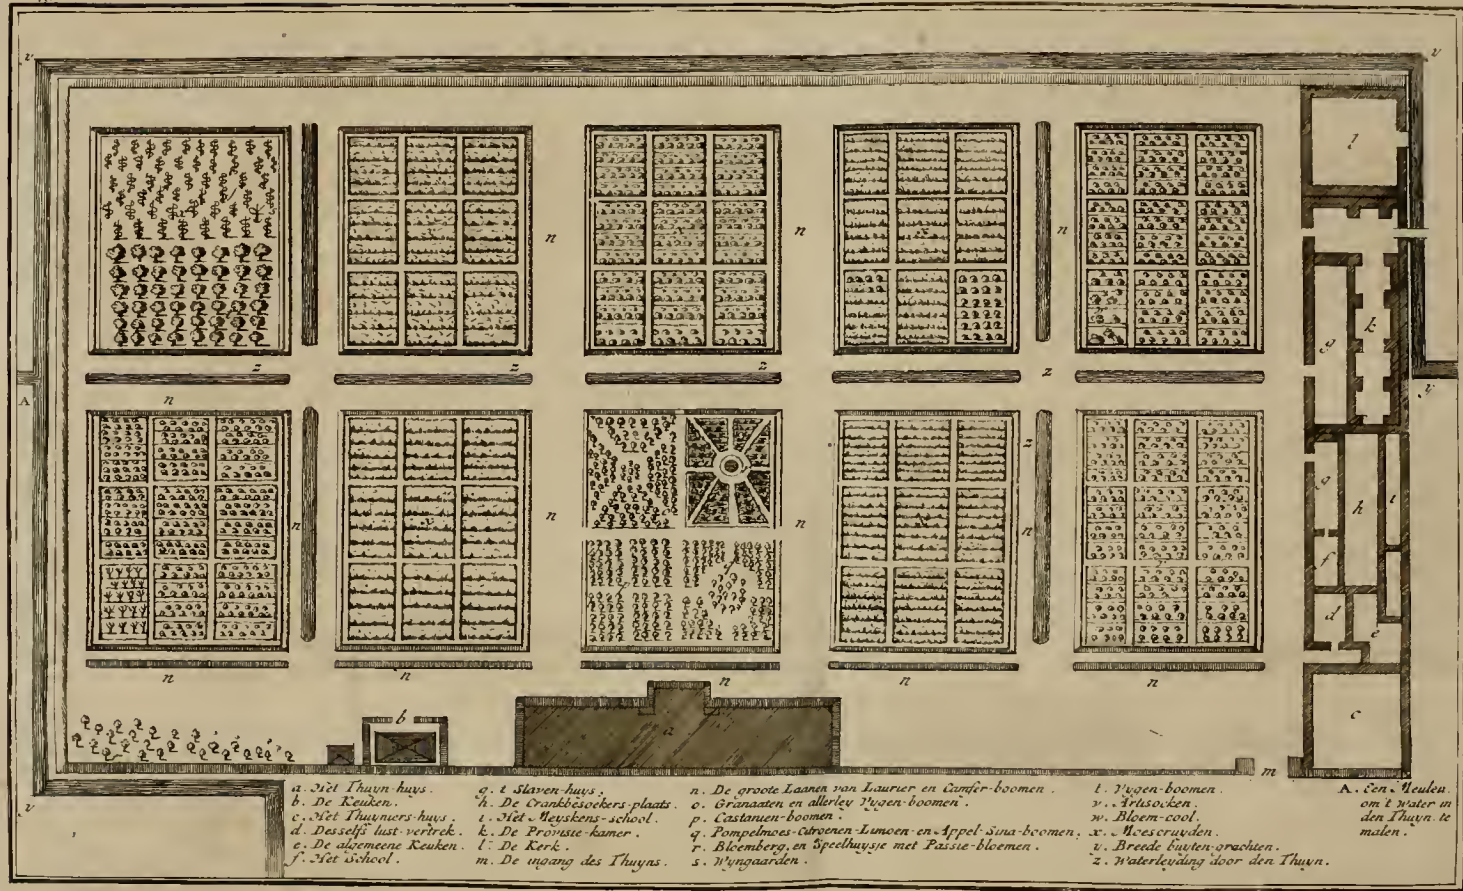 a. Het Thuyn-huys.
b. De Keuken.
c. Het Thuyniers-huys.
d. Desselfs lust-vertrek.
e. De algemeene Keuken.
f. Het School.
g. t Slaven-huys.
h. De Crankbesoekers-plaats.
i. Het Meyskens-school.
k. De Provisie-kamer.
l. De Kerk.
m. De ingang des Thuyns.
n. De groote Laanen van Laurier en Camfer-boomen.
o. Granaaten en allerley Vygen-boomen.
p. Castanien-boomen.
q. Pompelmoes-Citroenen-Limoen-en Appel-Sina-boomen.
r. Bloemberg, en Speelhuysje met Passie-bloemen.
s. Wyngaarden.
t. Vygen-boomen.
v. Artisocken.
w. Bloem-cool.
x. Moescruyden.
y. Breede buyten-grachten.
z. Waterleyding door den Thuyn.
A. Een Meulen
om t Water in
den Thuyn te
malen.
v
v
l
n
n
n
k
g
z
z
z
z
A
n
y
z
g
h
i
n
n
n
n
f
d
e
n
n
n
n
n
c
b
a
m
v